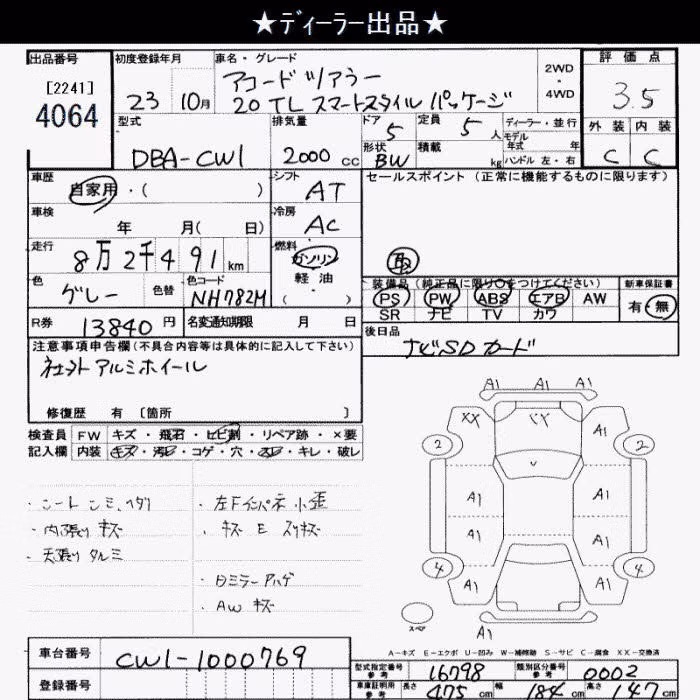 ★ディーラー出品★
出品番号
[2241]
4064
初度登録年月
23 10月
車名・グレード
アコードツアラー
20TL スマートスタイル パッケージ
2WD・4WD
評価点
3.5
外装 内装
C C
型式
DBA-CW1
排気量
2000 cc
ドア 5
定員 5 人
形状 BW
積載 kg
ディーラー・並行
モデル年式 年
ハンドル 左・右
車歴
自家用・( )
シフト
AT
セールスポイント (正常に機能するものに限ります)
車検
年 月( 日)
冷房
AC
走行
8万2千491 km
燃料
ガソリン
軽油
( )
取
色
グレー
色替
色コード
NH782M
装備品 (純正品に限り○をつけてください)
PS PW ABS エアB AW
SR ナビ TV カワ
新車保証書
有・無
R券 13840 円
名変通知期限 月 日
後日品
ナビSDカード
注意事項申告欄 (不具合内容等は具体的に記入して下さい)
社外アルミホイール
修復歴 有 〔箇所 〕
検査員記入欄
FW キズ・飛石・ヒビ割・リペア跡・×要
内装 キズ・汚レ・コゲ・穴・スレ・キレ・破レ
・シート シミ、ヘタリ
・内張り キズ
・天張り タルミ
・左Fインパネ 小歪
・キズ E スリキズ
・ドミラー ハゲ
・AW キズ
A1 A1 A1
XX
XX
A1
2
2
A1
A1
A1
A1
4
4
A1
A1
A1
スペア
A-キズ E-エクボ U-凹み W-補修跡 S-サビ C-腐食 XX-交換済
車台番号
CW1-1000769
登録番号
型式指定番号 参考
16798
類別区分番号 参考
0002
車庫証明用 参考
長さ 475 cm
幅 184 cm
高さ 147 cm